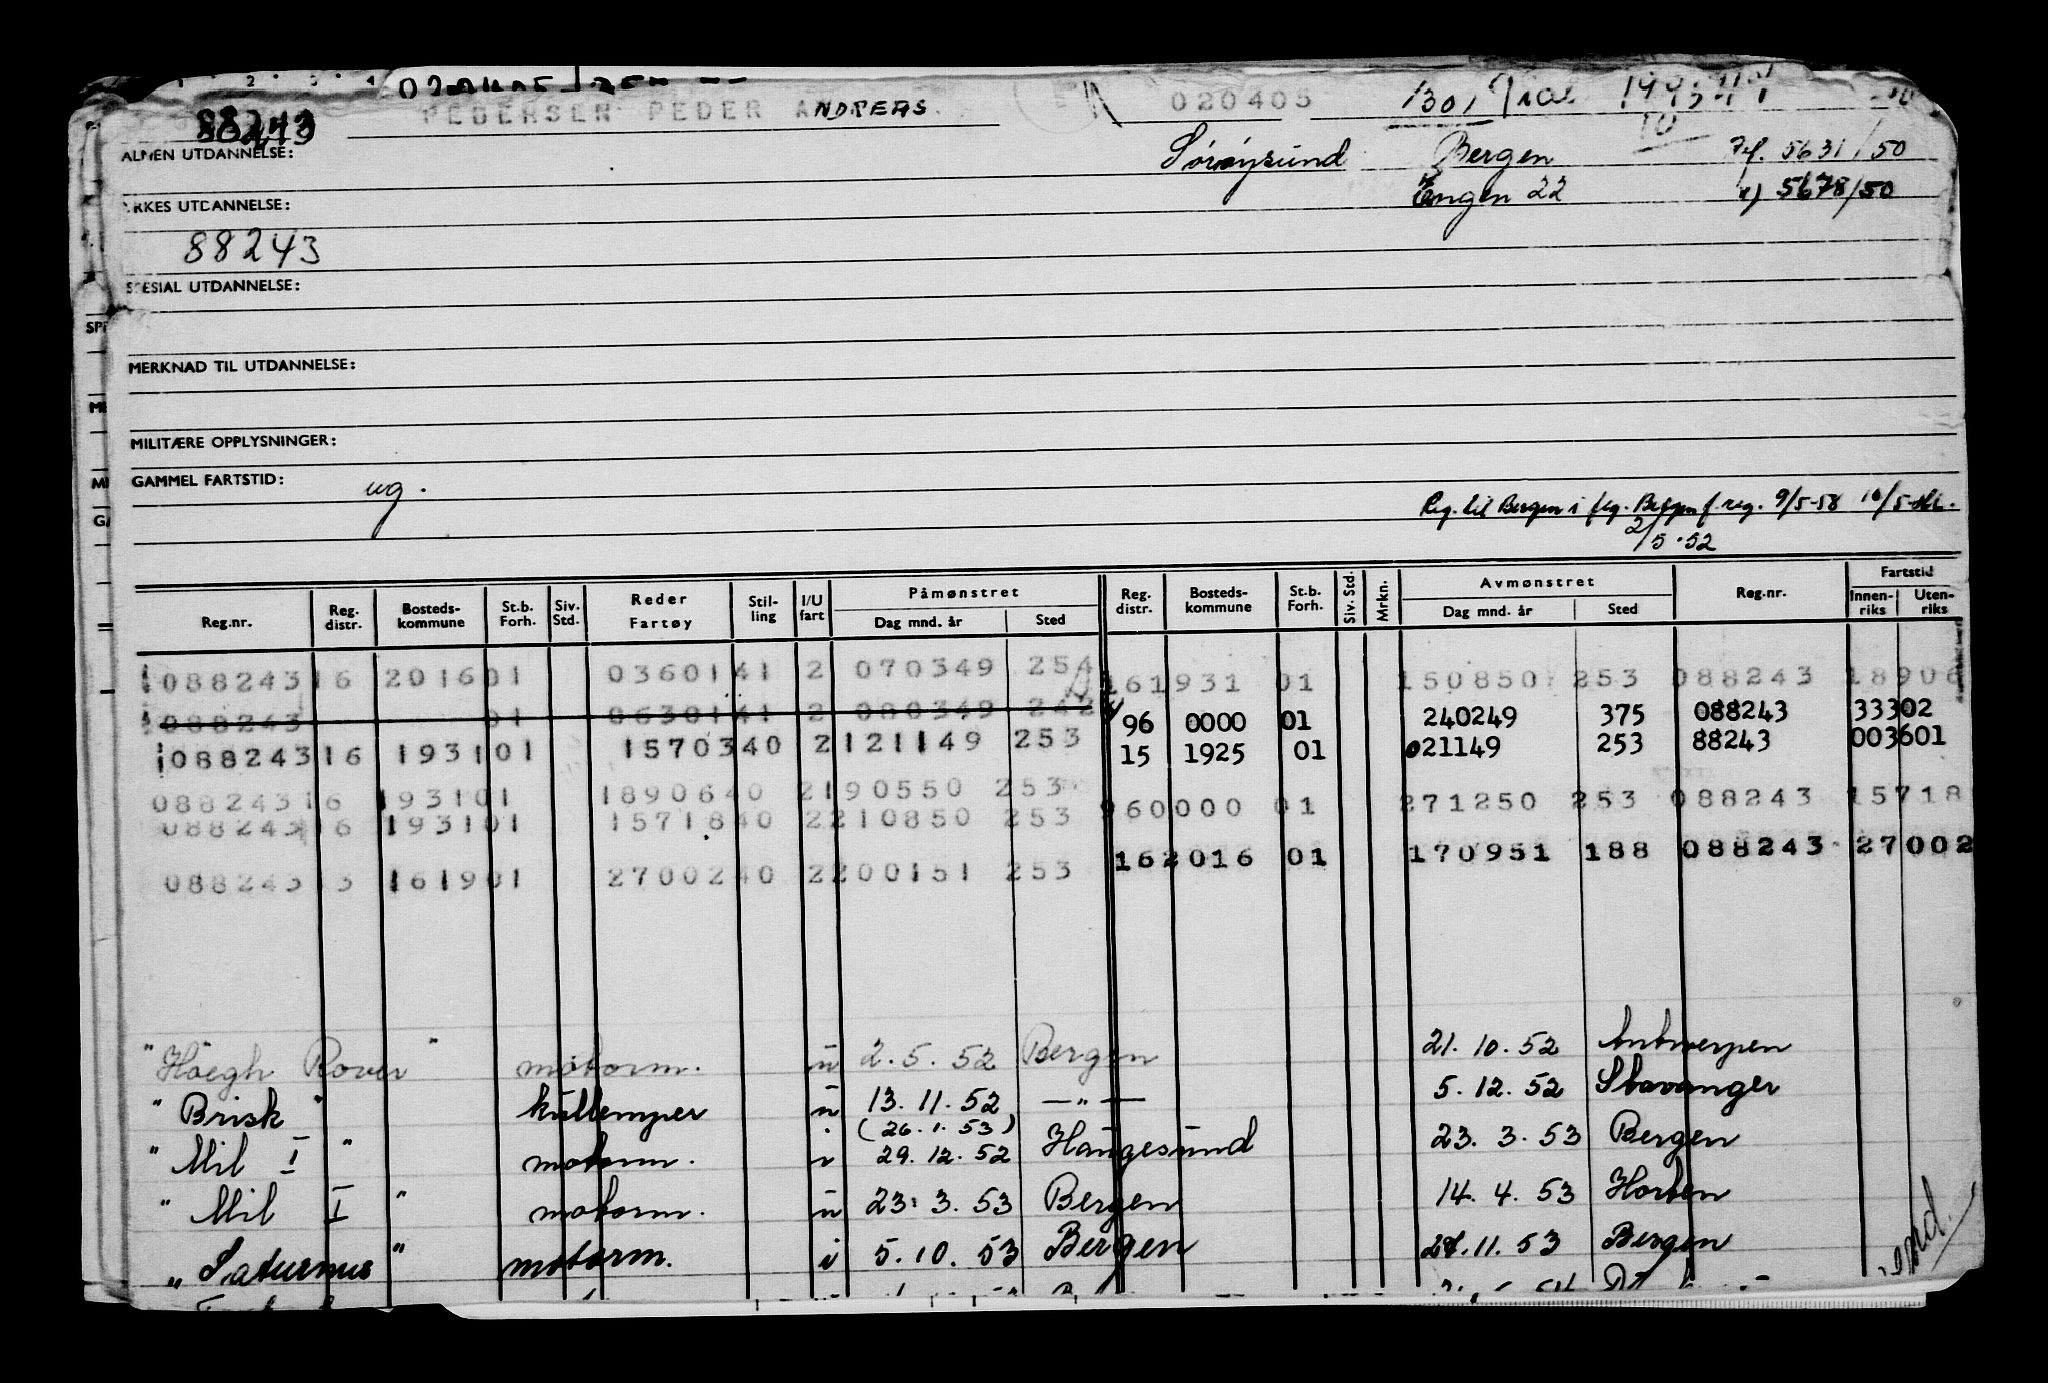 88243 PEDERSEN PEDER ANDREAS. 020405 1301
ALMEN UTDANNELSE: Sørøysund Bergen Ref. 5631/50
YRKES UTDANNELSE: Engen 22 5678/50
88243
SPESIAL UTDANNELSE:
MERKNAD TIL UTDANNELSE:
MILITÆRE OPPLYSNINGER:
GAMMEL FARTSTID: ug.
Reg. til Bergen i flg. Bergen f. reg. 9/5-58
2/5.52
Reg.nr. Reg. distr. Bosteds- kommune St.b. Forh. Siv. Std. Reder Fartøy Stil- ling I/U fart Påmønstret Dag mnd. år Sted Reg. distr. Bosteds- kommune St.b. Forh. Siv. Std. Mrkn. Avmønstret Dag mnd. år Sted Reg.nr. Fartstid Innen- riks Uten- riks
088243 16 2016 01 0360141 2 070349 254 161931 01 150850 253 088243 18906
088243 01 0630141 2 080349 242 96 0000 01 240249 375 088243 33302
088243 16 1931 01 1570340 2 121149 253 15 1925 01 021149 253 88243 003601
088243 16 1931 01 1890640 2 190550 253 960000 01 271250 253 088243 15718
088243 16 1931 01 1571840 2 210850 253
162016 01 170951 188 088243 27002
088243 13 1619 01 2700240 2 200151 253
"Höegh Rover" motorm. u 2.5.52 Bergen 21.10.52 Antwerpen
"Brisk" kullemper u 13.11.52 —"— 5.12.52 Stavanger
(26.1.53)
"Mil I" motorm. i 29.12.52 Haugesund 23.3.53 Bergen
"Mil I" motorm. u 23.3.53 Bergen 14.4.53 Horten
"Saturnus" motorm. i 5.10.53 Bergen 28.11.53 Bergen